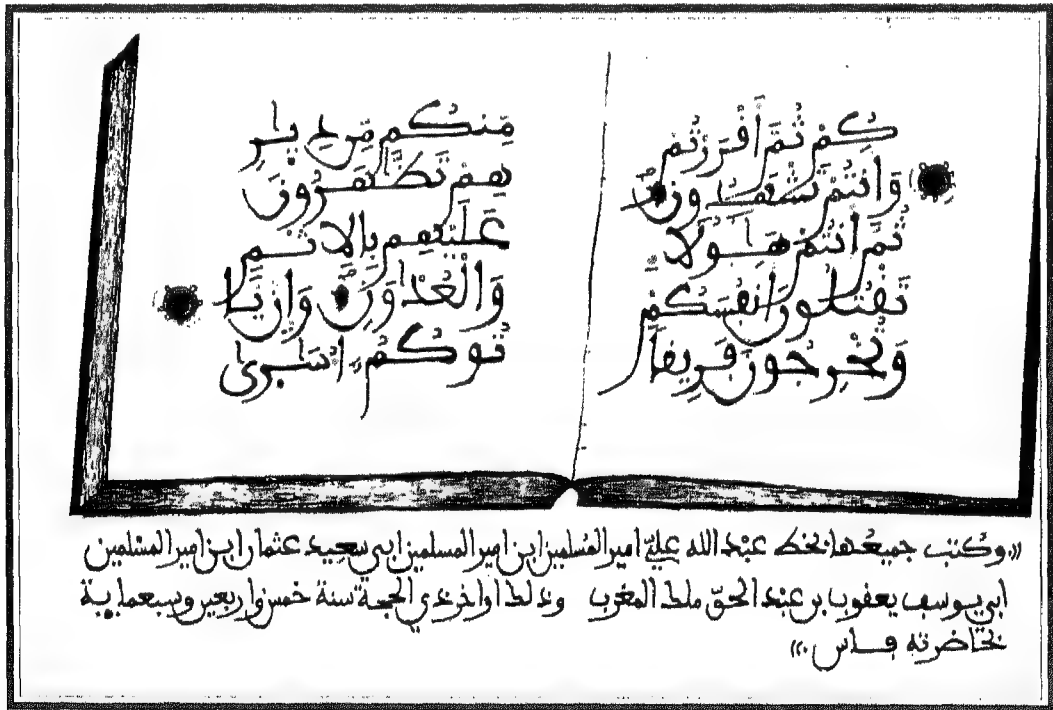 كُمْ ثُمَّ أَقْرَرْتُمْ
وَأَنتُمْ تَشْهَدُونَ
ثُمَّ أَنتُمْ هَٰؤُلَاء
تَقْتُلُونَ أَنفُسَكُمْ
وَتُخْرِجُونَ فَرِيقاً
مِّنكُم مِّن دِيَٰرِ
هِمْ تَظَّٰهَرُونَ
عَلَيْهِم بِالاثْمِ
وَالْعُدْوَٰنِ وَإِن يَا
تُوكُمُۥ أُسَٰرَىٰ
«وكتب جميعها بخط عبد الله علي امير المسلمين ابن امير المسلمين ابي سعيد عثمان ابن امير المسلمين
ابي يوسف يعقوب بن عبد الحق ملك المغرب وذلك اواخر ذي الحجة سنة خمس واربعين وسبعماية
بحاضرته فاس.»